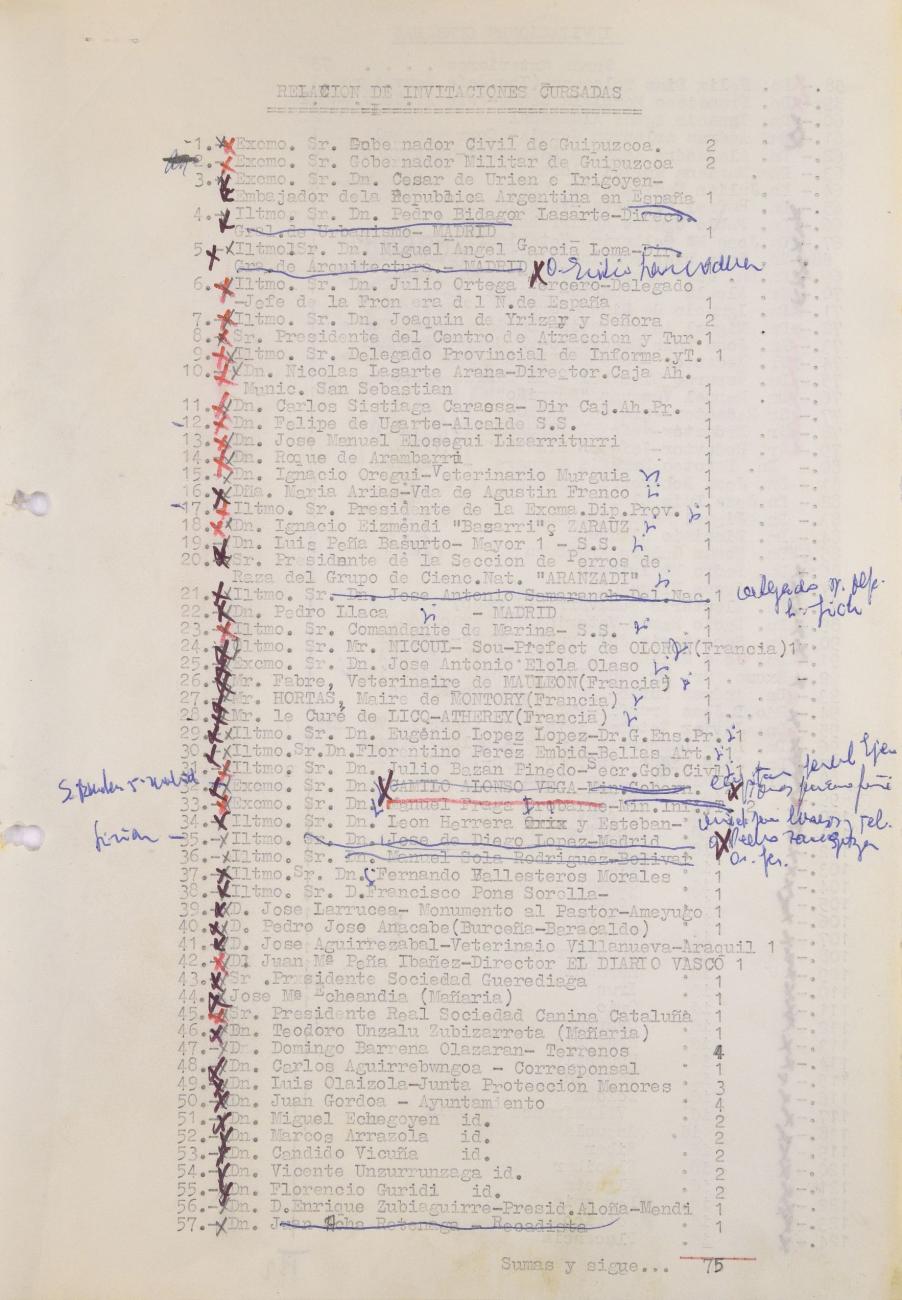 RELACION DE INVITACIONES CURSADAS
1.- Excmo. Sr. Gobernador Civil de Guipuzcoa. 2
2.- Excmo. Sr. Gobernador Militar de Guipuzcoa 2
3.- Excmo. Sr. Dn. Cesar de Urien e Irigoyen-
Embajador dela Republica Argentina en España 1
4.- Iltmo. Sr. Dn. Pedro Bidagor Lasarte-Direct.
Gral.de Urbanismo- MADRID 1
5.- Iltmo1Sr. Dn. Miguel Angel Garcia Loma-Dir
Gra.de Arquitectura - MADRID
6.- Iltmo. Sr. Dn. Julio Ortega Tercero-Delegado
-Jefe de la Fron era del N.de España 1
7.- Iltmo. Sr. Dn. Joaquin de Yrizar y Señora 2
8.- Sr. Presidente del Centro de Atraccion y Tur.1
9.- Iltmo. Sr. Delegado Provincial de Informa.yT. 1
10.- Dn. Nicolas Lasarte Arana-Director.Caja Ah.
Munic. San Sebastian 1
11.- Dn. Carlos Sistiaga Caraesa- Dir Caj.Ah.Pr. 1
12.- Dn. Felipe de Ugarte-Alcalde S.S. 1
13.- Dn. Jose Manuel Elosegui Lizarriturri 1
14.- Dn. Roque de Arambarri 1
15.- Dn. Ignacio Oregui-Veterinario Murguia 1
16.- Dña. Maria Arias-Vda de Agustin Franco 1
17.- Iltmo. Sr. Presidente de la Excma.Dip.Prov. 1
18.- Dn. Ignacio Eizmendi "Basarri"ç ZARAUZ 1
19.- Dn. Luis Peña Basurto- Mayor 1 - S.S. 1
20.- Sr. Presidante de la Seccion de Perros de
Raza del Grupo de Cienc.Nat. "ARANZADI" 1
21.- Iltmo. Sr. Dn. Jose Antonio Samaranch-Del.Nac. 1
22.- Dn. Pedro Illaca - MADRID 1
23.- Iltmo. Sr. Comandante de Marina- S.S. 1
24.- Iltmo. Sr. Mr. NICOUL- Sou-Prefect de OLORON(Francia)1
25.- Excmo. Sr. Dn. Jose Antonio Elola Olaso 1
26.- Mr. Fabre, Veterinaire de MAULEON(Francia) 1
27.- Mr. HORTAS, Maire de MONTORY(Francia) 1
28.- Mr. le Curé de LICQ-ATHEREY(Francia) 1
29.- Iltmo. Sr. Dn. Eugenio Lopez Lopez-Dr.G.Ens.Pr. 1
30.- Iltmo.Sr.Dn.Florentino Perez Embid-Bellas Art. 1
31.- Iltmo. Sr. Dn. Julio Bazan Pinedo-Secr.Gob.Civil 1
32.- Excmo. Sr. Dn. CAMILO ALONSO VEGA-Min.Gobern.
33.- Excmo. Sr. Dn. Manuel Fraga Iribarne-Min.Inf. 2
34.- Iltmo. Sr. Dn. Leon Herrera y Esteban-
35.- Iltmo. Sr. Dn. Jose de Diego Lopez-Madrid
36.- Iltmo. Sr. Dn. Manuel Sola Rodriguez-Bolivat 1
37.- Iltmo.Sr. Dn.ÇFernando Ballesteros Morales 1
38.- Iltmo. Sr. D.Francisco Pons Sorolla- 1
39.- D. Jose Larrucea- Monumento al Pastor-Ameyugo 1
40.- D. Pedro Jose Anacabe(Burceña-Baracaldo) 1
41.- D. Jose Aguirrezabal-Veterinaio Villanueva-Araquil 1
42.- D. Juan Mª Peña Ibañez-Director EL DIARIO VASCO 1
43.- Sr .Presidente Sociedad Guerediaga 1
44.- Jose Mª Echeandia (Mañaria) 1
45.- Sr. Presidente Real Sociedad Canina Cataluña 1
46.- Dn. Teodoro Unzalu Zubizarreta (Mañaria) 1
47.- D . Domingo Barrena Olazaran- Terrenos 4
48.- Dn. Carlos Aguirrebwngoa - Corresponsal 1
49.- Dn. Luis Olaizola-Junta Proteccion Menores 3
50.- Dn. Juan Gordoa - Ayuntamiento 4
51.- Dn. Miguel Echegoyen id. 2
52.- Dn. Marcos Arrazola id. 2
53.- Dn. Candido Vicuña id. 2
54.- Dn. Vicente Unzurrunzaga id. 2
55.- Dn. Florencio Guridi id. 2
56.- Dn. D.Enrique Zubiaguirre-Presid.Aloña-Mendi 1
57.- Dn. Juan - Recadista 1
Sumas y sigue... 75